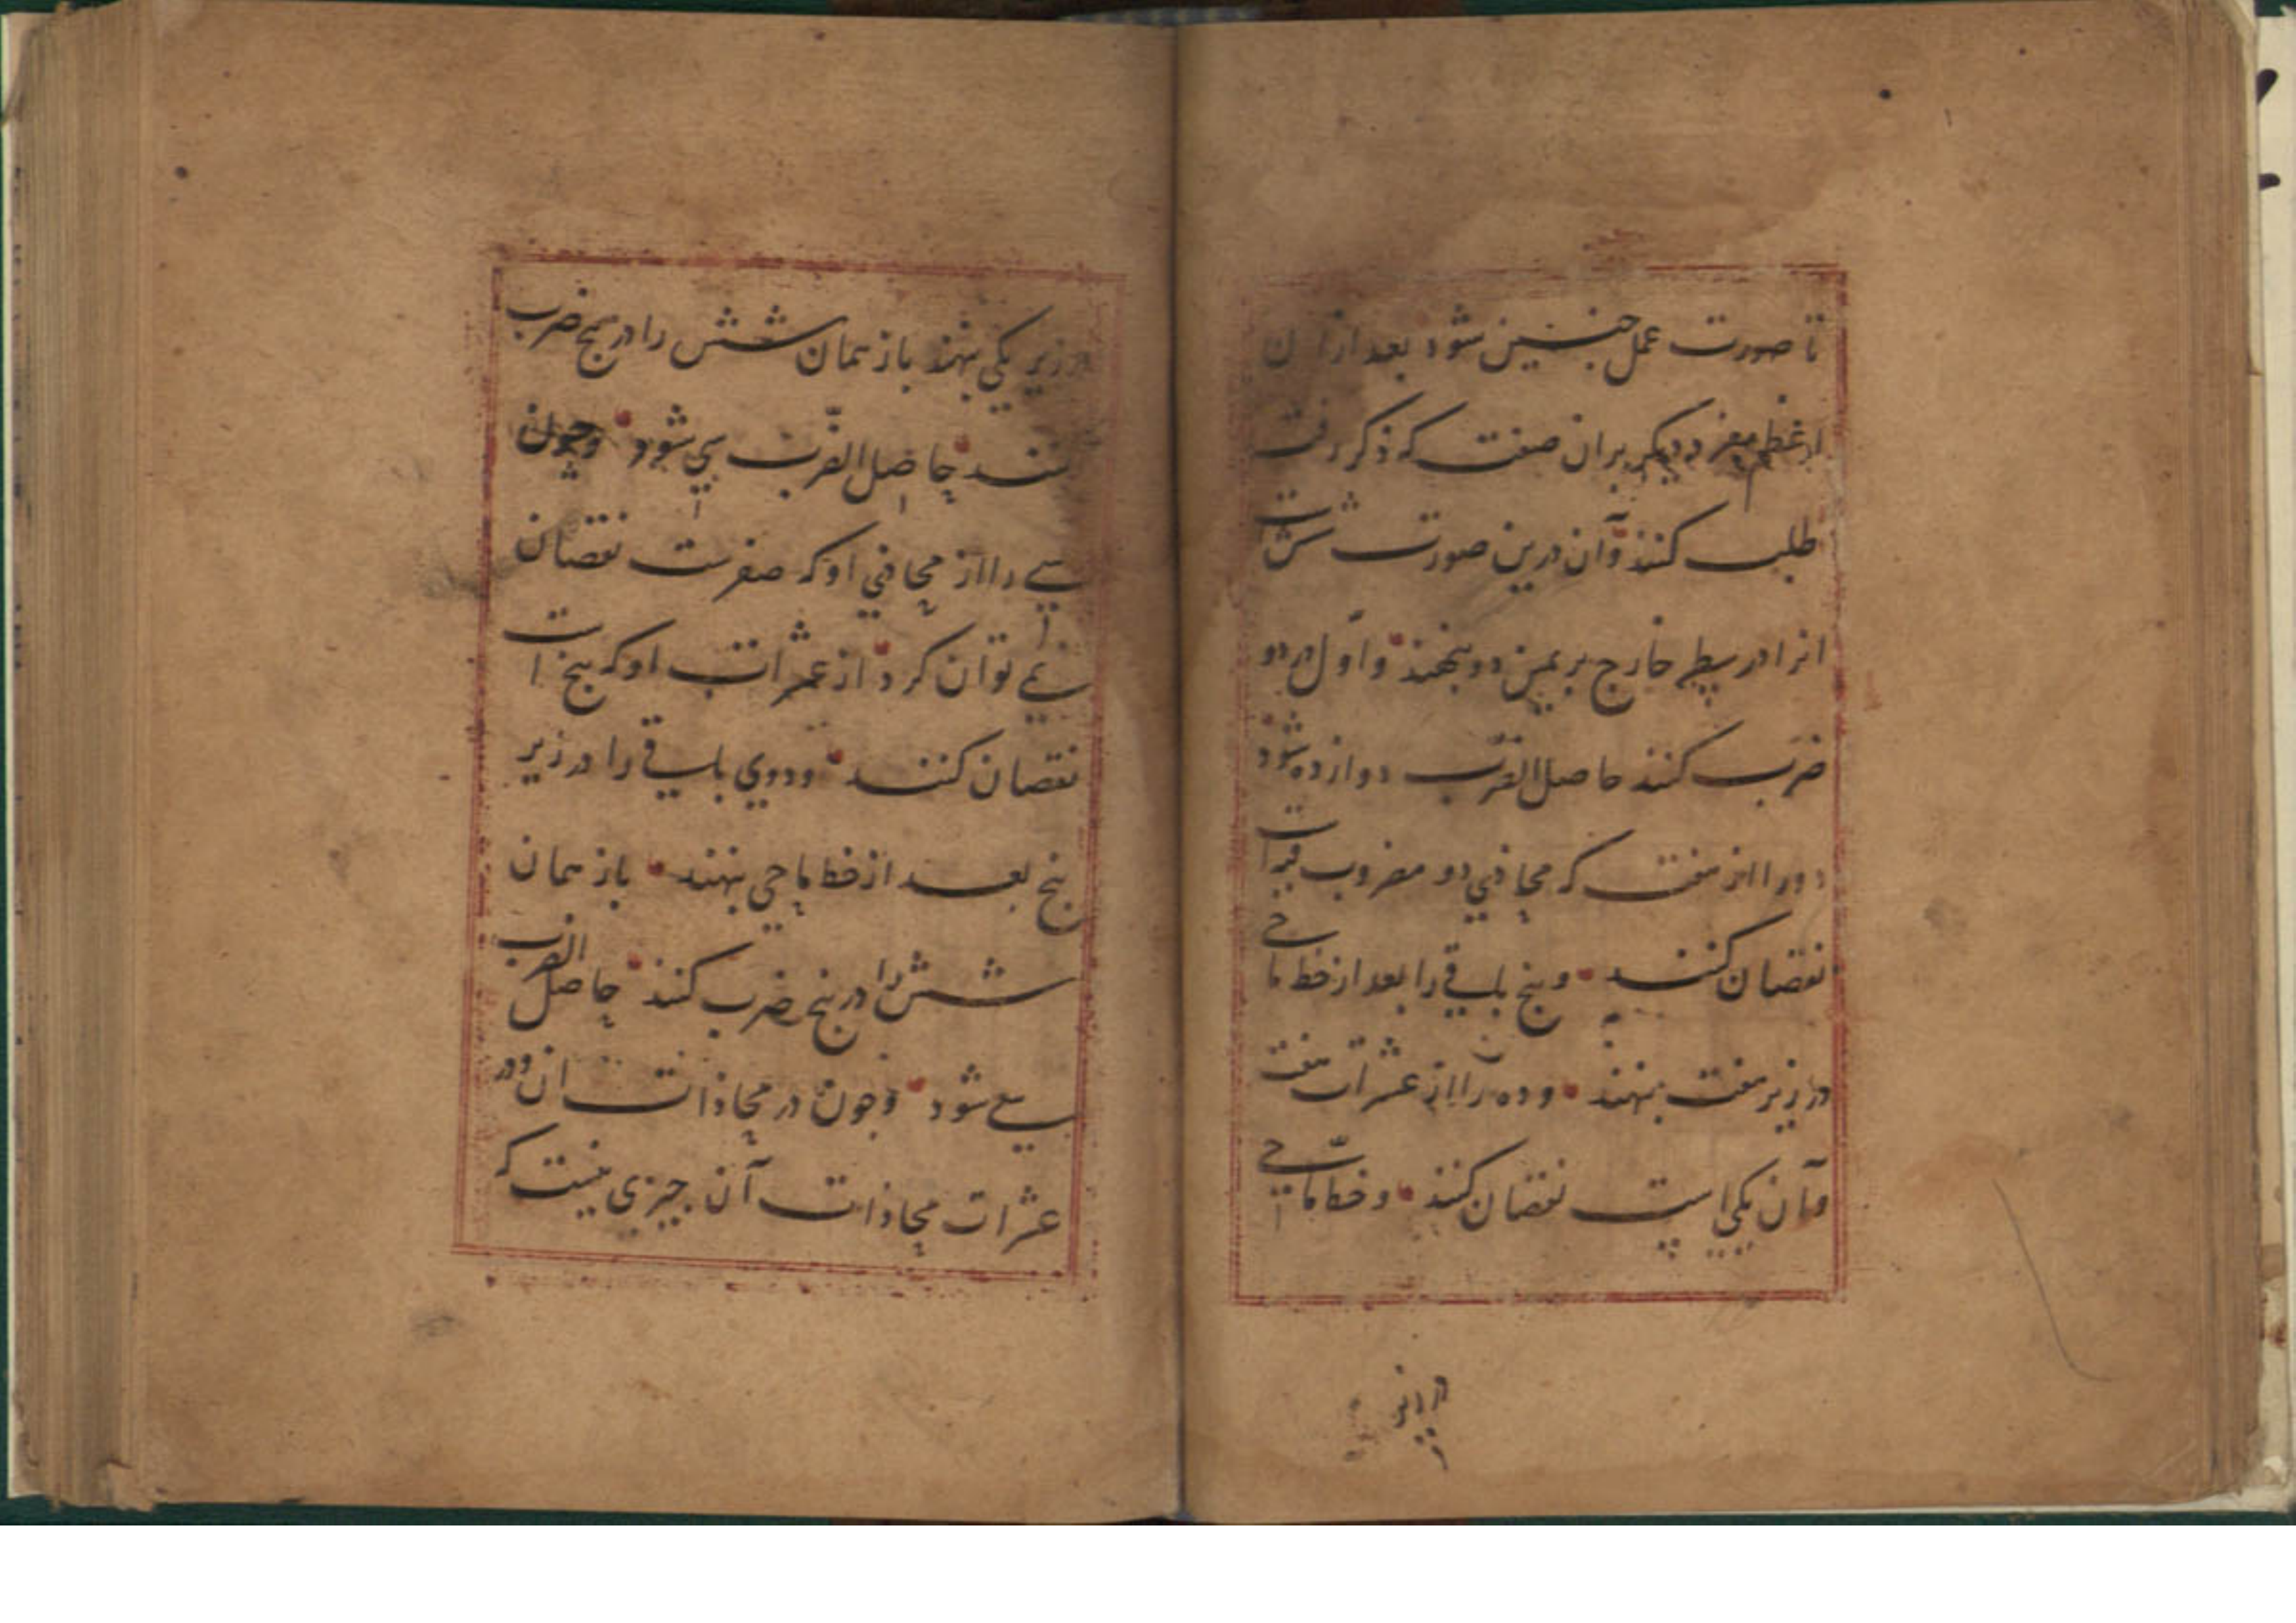 تا صورت عمل چنین شود بعد ازان
اعظم مفرد دیکر بران صفت که ذکر رفت
طلب کنند و آن درین صورت شش است
انرا در سطر خارج بر یمین دو بنهند و اول در دو
ضرب کنند حاصل الضرب دوازده شود
دو را از هفت که محاذی دو مضروب فیه است
نقصان کنند و پنج باقی را بعد از خط ماحی
در زیر هفت بنهند و ده را از عشرات هفت
و آن یکی است نقصان کنند و خط ماحی
در زیر
در زیر یکی بنهند باز همان شش را در پنج ضرب
کنند حاصل الضرب سی شود و چون
سی را از محاذی او که صفرست نقصان
نمی توان کرد از عشرات او که پنج است
نقصان کنند و دوی باقی را در زیر
پنج بعد از خط ماحی بنهند باز همان
شش را در پنج ضرب کنند حاصل الضرب
سی شود و چون در محاذات ان و در
عشرات محاذات آن چیزی نیست که